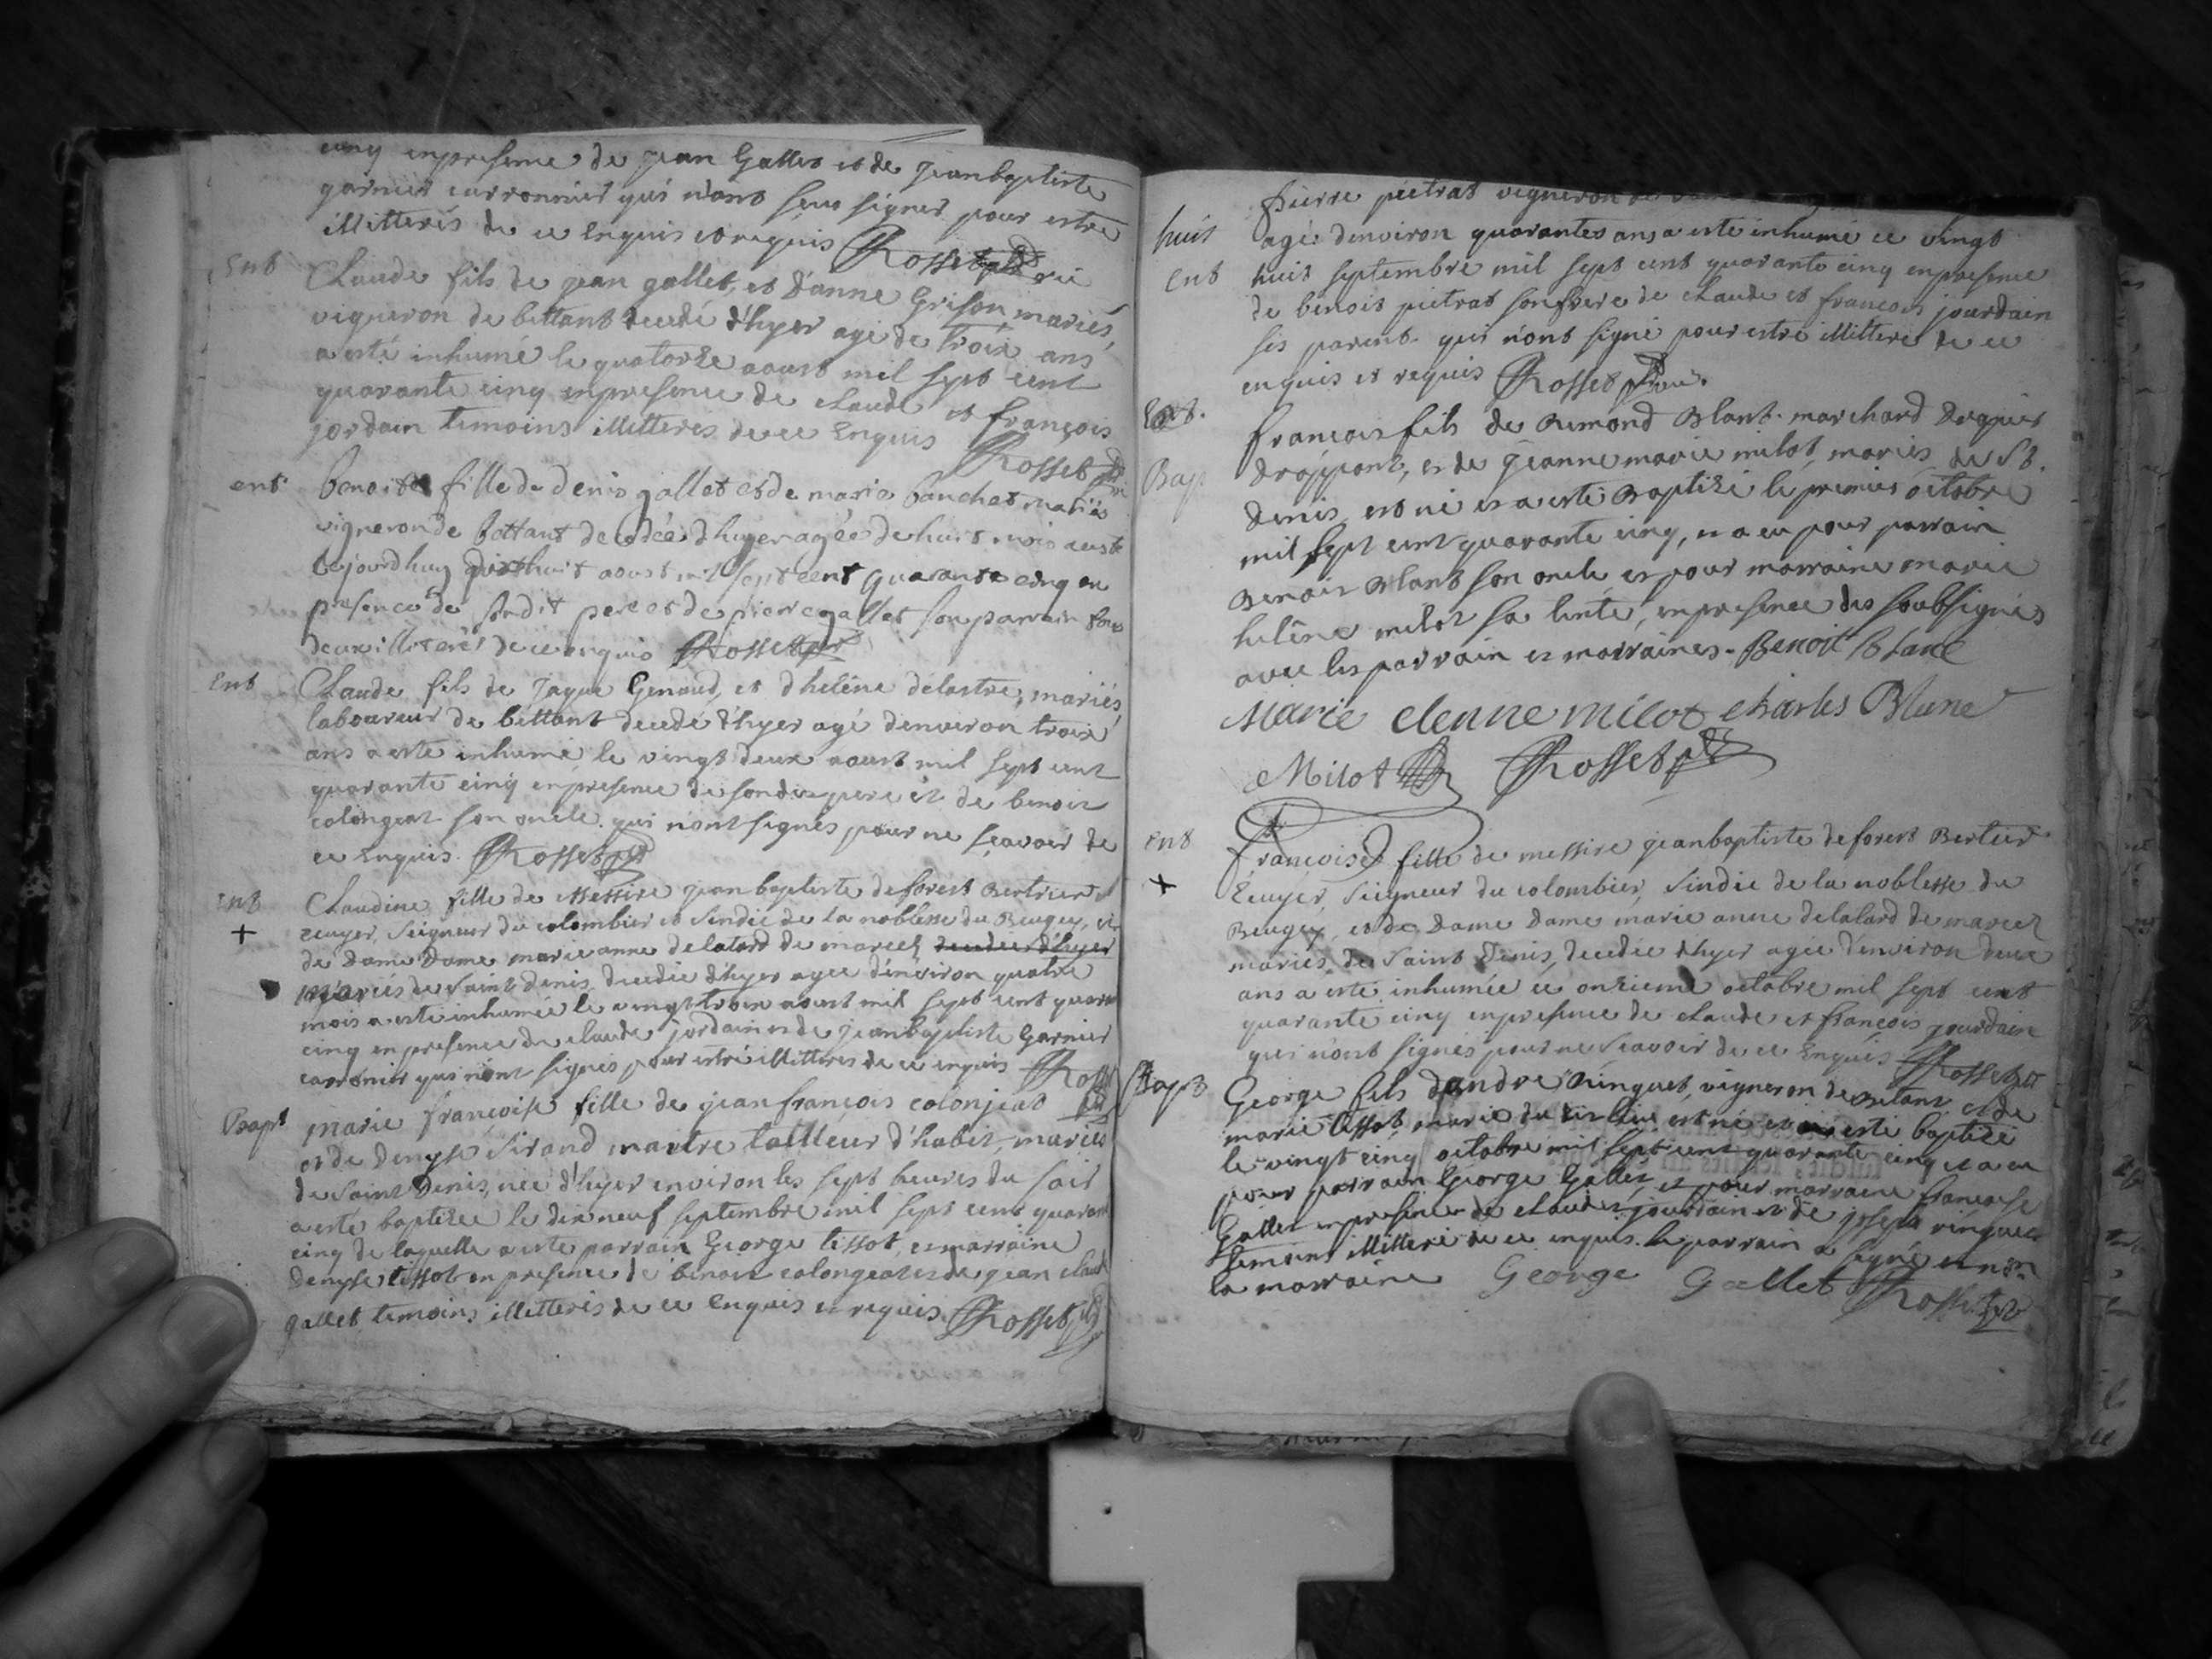 cinq enpresence de jean Gallet et de jeanbaptiste
garnier carronnier qui n'ont sceu signer pour estre
illitterés de ce Enquis et requis Rosset
Ent
Claude fils de jean gallet, et d'anne Grison mariés,
vigneron de bettant decedé d'hyer agé de trois ans
a esté inhumé le quatorze aoust mil sept cent
quarante cinq enpresence de claude et françois
jordain temoins illitteres de ce Enquis Rosset
ent
benoite fille de denis gallet et de marie bauchet mariés
vigneron de bettant decedée d'hyer agée de huit mois
aujourdhuy dixhuit aoust mil sept cent quarante cinq en
presence de sondit pere et de pierre gallet son parrain tous
deux illiterés de ce enquis Rosset
Ent
Claude fils de jaque Genaud, et d'helêne delastre, mariés
laboureur de bettant decedé d'hyer agé denviron trois
ans a esté inhumé le vingt deux aoust mil sept cent
quarante cinq enpresence de sondit pere et de benoit
colongeat son oncle qui n'ont signés pour ne sçavoir de
ce Enquis. Rosset
Ent
+
Claudine fille de Messire jean baptiste deforest Bertrier
ecuyer, Seigneur du colombier et Sindic de la noblesse du Beugey, et
de Dame Dame marie anne delatard de marcel decedée d'hyer
mariés de Saint denis, decedée d'hyer agée d'environ quatre
mois a esté inhumée le vingt trois aoust mil sept cent quarante
cinq enpresence de claude jordain et de jeanbaptiste Garnier
carronier qui n'ont signés pour estre illitteres de ce enquis Rosset
Bapt
marie françoise fille de jeanfrançois colonjeat
et de denyse Sirand maitre tailleur d'habit, mariés
de saint Denis, née d'hyer environ les sept heures du soir
a esté baptisée le dixneuf septembre mil sept cent quarante
cinq de laquelle a esté parrain George tissot, et marraine
denyse tissot en presence de benoit colongeat et de jean claude
gallet temoins illitteris de ce Enquis et requis. Rosset
pierre pietrat vigneron
huit agé denviron quarantes ans a esté inhumé ce vingt
ent huit septembre mil sept cent quarante cinq enpresence
de benoit pietrat son frere de claude et françois jourdain
ses parent qui n'ont signé pour estre illittere de ce
enquis et requis Rosset
Bap
françois fils de Rimond Blant marchand drapier
drappant, et de jeanne marie milot, mariés de St.
denis est né et a esté Baptisé le premier octobre
mil sept cent quarante cinq, et a eu pour parrain
Benoit Blant son oncle et pour marraine marie
helêne milot sa tente, enpresence des soubsignés
avec les parrain et marraines. Benoit blanc
Marie elenne milot charles Blanc
Milot Rosset
ent
+
françoise fille de messire jeanbaptiste deforest Bertier
Ecuyer, Seigneur du colombier, Sindic de la noblesse du
Beugey, et de Dame Dame marie anne delalard de marcel
mariés de Saint Denis, decedée d'hyer agée denviron deux
ans a esté inhumée ce onzieme octobre mil sept cent
quarante cinq enpresence de claude et françois jourdain
qui n'ont signés pour ne Scavoir de ce Enquis Rosset
Bapt
George fils dandré Ringuet, vigneron de Betant et de
marie tissot, marié du dit lieu est né et a esté baptisé
le vingt cinq octobre mil sept cent quarante cinq et a eu
pour parrain George Gallet et pour marraine françoise
Gallet enpresence de claude jourdain et de joseph ringuet
temoins illitteré de ce enquis. le parrain a signé et non
la marraine George Gallet Rosset